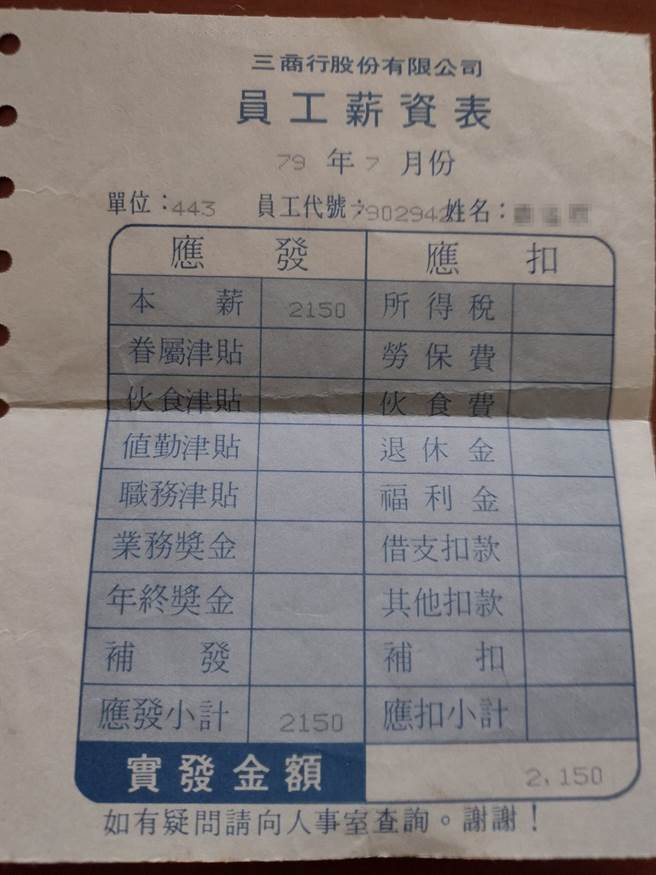 三商行股份有限公司
員工薪資表
79 年 7 月份
單位：443 員工代號：790294 姓名：
應發 應扣
本薪 2150 所得稅
眷屬津貼 勞保費
伙食津貼 伙食費
值勤津貼 退休金
職務津貼 福利金
業務獎金 借支扣款
年終獎金 其他扣款
補發 補扣
應發小計 2150 應扣小計
實發金額 2,150
如有疑問請向人事室查詢。謝謝！